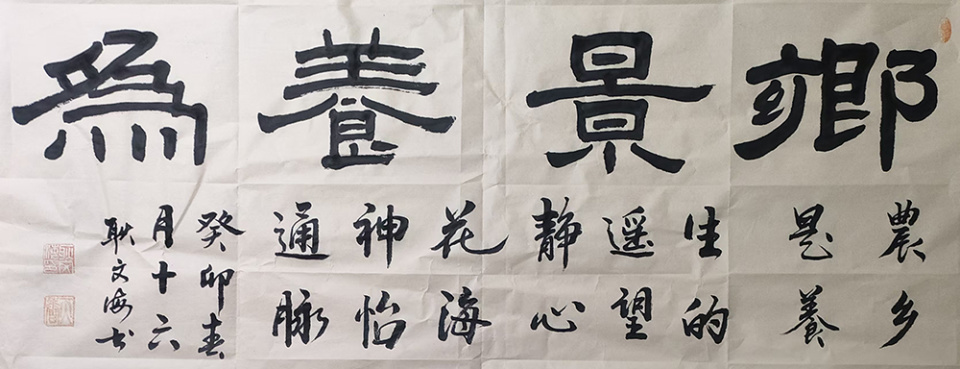 鄉景養為
農乡
是養
生的
遥望
静心
花海
神怡
通脉
癸卯春
月十六
耿文海书